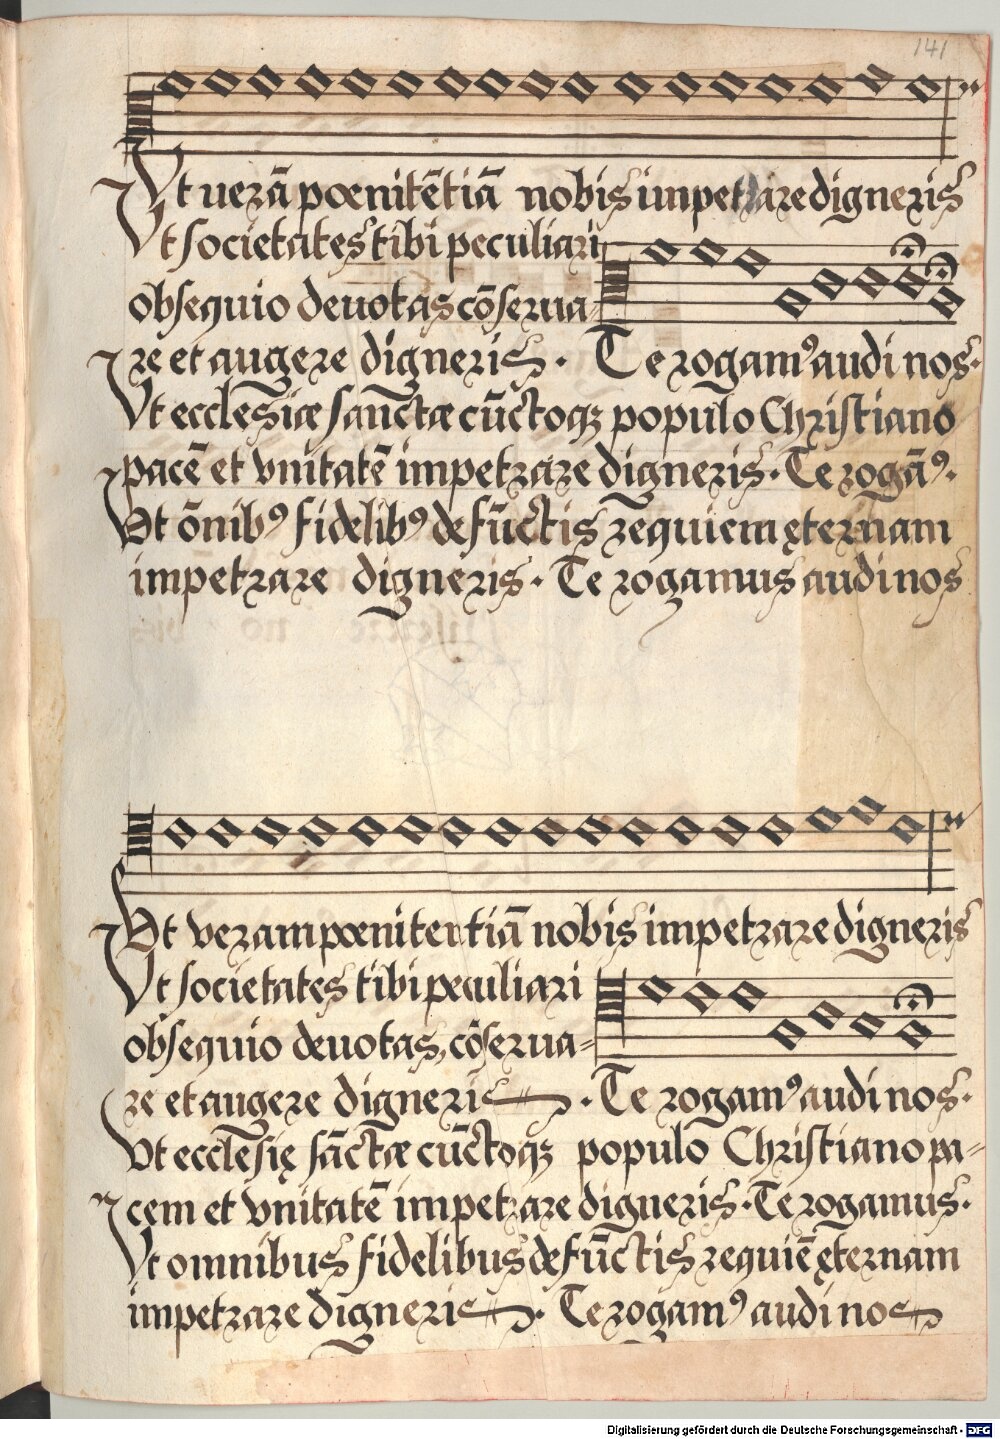 141
Vt uerā pœnitētiā nobis impetrare digneris
Vt societates tibi peculiari
obsequio deuotas cōserua-
re et augere digneris. Te rogamꝰ audi nos.
Vt ecclesiæ sanctæ cūctoqꝫ populo Christiano
pacē et vnitatē impetrare digneris. Te rogāꝰ.
Vt ōnibꝰ fidelibꝰ defūctis requiem ęternam
impetrare digneris. Te rogamus audi nos
Vt veram pœnitentiā nobis impetrare digneris
Vt societates tibi peculiari
obsequio deuotas, cōserua=
re et augere digneris. Te rogamꝰ audi nos.
Vt ecclesię sāctæ cūctoqꝫ populo Christiano pa-
cem et vnitatē impetrare digneris. Te rogamus.
Vt omnibus fidelibus defūctis requiē ęternam
impetrare digneris. Te rogamꝰ audi nos
Digitalisierung gefördert durch die Deutsche Forschungsgemeinschaft - DFG